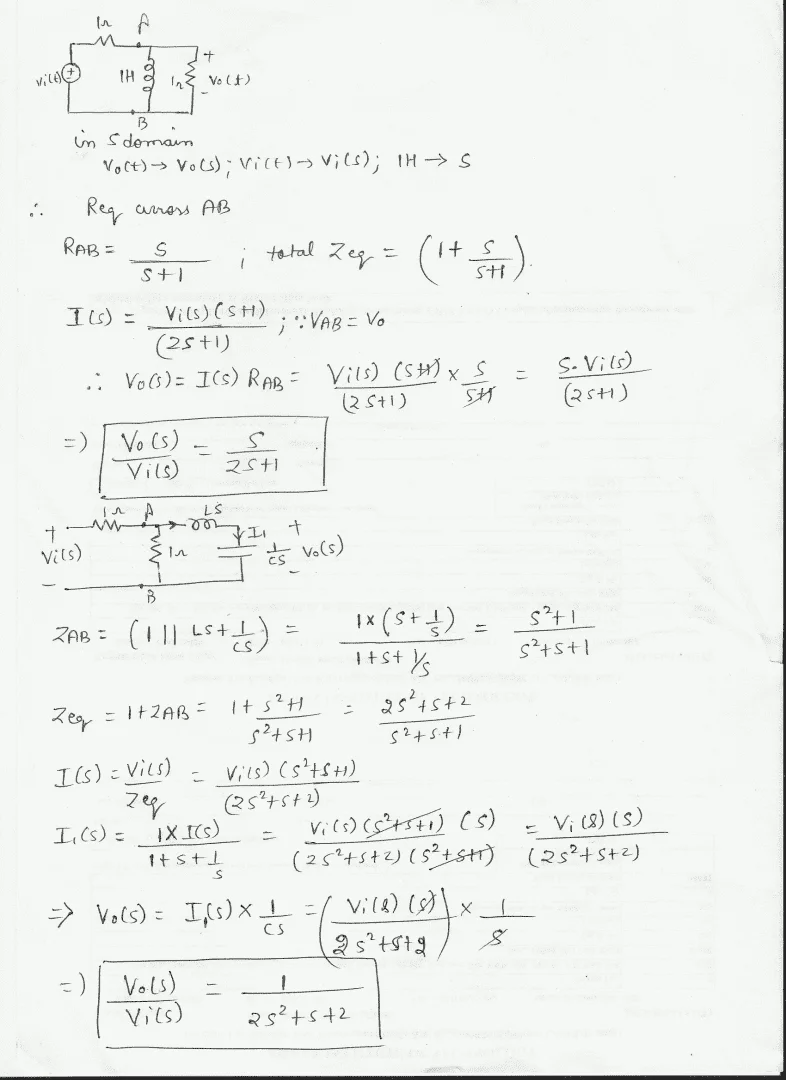 1Ω A
Vi(t) + 1H 1Ω + Vo(t) -
B
in S domain
Vo(t) → Vo(s); Vi(t) → Vi(s); 1H → S
∴ Req across AB
RAB = S/(S+1) ; total Zeq = (1 + S/(S+1)).
I(s) = Vi(s)(S+1)/(2S+1) ; ∵ VAB = Vo
∴ Vo(s) = I(s) RAB = Vi(s) (S+1)/(2S+1) × S/(S+1) = S. Vi(s)/(2S+1)
=) Vo(s)/Vi(s) = S/(2S+1)
1Ω A LS
+ Vi(s) - 1Ω I1 1/CS + Vo(s) -
B
ZAB = (1 || LS + 1/CS) = 1×(S + 1/S)/(1+S+1/S) = (S²+1)/(S²+S+1)
Zeq = 1+ZAB = 1 + (S²+1)/(S²+S+1) = (2S²+S+2)/(S²+S+1)
I(s) = Vi(s)/Zeq = Vi(s) (S²+S+1)/(2S²+S+2)
I1(s) = 1×I(s)/(1+S+1/S) = Vi(s)(S²+S+1) (S)/((2S²+S+2)(S²+S+1)) = Vi(s)(S)/(2S²+S+2)
⇒ Vo(s) = I1(s) × 1/CS = (Vi(s)(S)/(2S²+S+2)) × 1/S
=) Vo(s)/Vi(s) = 1/(2S²+S+2)